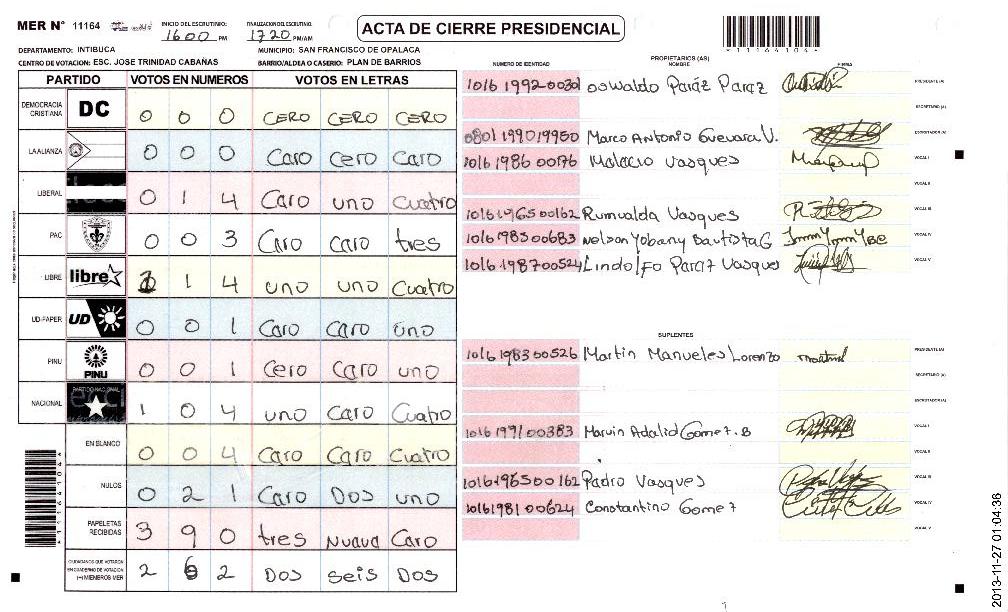 MER N° 11164 INICIO DEL ESCRUTINIO: 1600 PM FINALIZACION DEL ESCRUTINIO: 1720 PM/AM ACTA DE CIERRE PRESIDENCIAL
*1111641044*
DEPARTAMENTO: INTIBUCA MUNICIPIO: SAN FRANCISCO DE OPALACA
CENTRO DE VOTACION: ESC. JOSE TRINIDAD CABAÑAS BARRIO/ALDEA O CASERIO: PLAN DE BARRIOS
PARTIDO VOTOS EN NUMEROS VOTOS EN LETRAS
DEMOCRACIA CRISTIANA DC 0 0 0 CERO CERO CERO
LA ALIANZA 0 0 0 Caro Cero Caro
LIBERAL 0 1 4 Caro uno Cuatro
PAC 0 0 3 Caro Caro tres
LIBRE libre 1 1 4 uno uno Cuatro
UD-FAPER UD 0 0 1 Caro Caro uno
PINU PINU 0 0 1 Cero Caro uno
NACIONAL PARTIDO NACIONAL 1 0 4 uno Caro Cuatro
EN BLANCO 0 0 4 Caro Caro Cuatro
NULOS 0 2 1 Caro Dos uno
PAPELETAS RECIBIDAS 3 9 0 tres Nuava Caro
CIUDADANOS QUE VOTARON EN CUADERNO DE VOTACION (+) MIEMBROS MER 2 6 2 Dos seis Dos
PROPIETARIOS (AS)
NUMERO DE IDENTIDAD NOMBRE FIRMA
oswaldo Paráz Paraz PRESIDENTE (A)
SECRETARIO (A)
0801 199019950 Marco Antonio Guevara V. ESCRUTADOR (A)
1016 1986 00176 Malacio Vasques VOCAL I
VOCAL II
1016196500162 Rumualda Vasques VOCAL III
1016 198500683 Nelson Yobany Bautista G VOCAL IV
1016 198700524 Lindolfo Paraz Vasques VOCAL V
SUPLENTES
1016 198300526 Martin Manueles Lorenzo PRESIDENTE (A)
SECRETARIO (A)
ESCRUTADOR (A)
1016 199100383 Marvin Adalid Gomez. B VOCAL I
VOCAL II
1016196500162 Padro Vasques VOCAL III
1016198100624 Constantino Gomez VOCAL IV
VOCAL V
2013-11-27 01:04:36